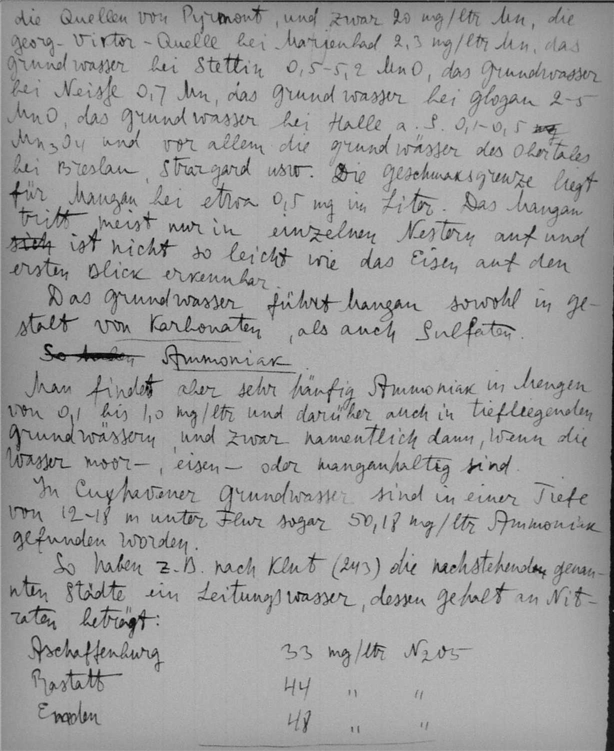 die Quellen von Pyrmont, und zwar 20 mg/ltr Mn, die
georg-Viktor-Quelle bei Marienbad 2,3 mg/ltr Mn, das
grundwasser bei Stettin 0,5-5,2 MnO, das Grundwasser
bei Neisse 0,7 Mn, das Grundwasser bei glogau 2-5
MnO, das Grundwasser bei Halle a. S. 0,1-0,5
Mn3O4 und vor allem die grundwässer des Odertales
bei Breslau, Stargard usw. Die geschmaksgrenze liegt
für Mangan bei etwa 0,5 mg im Liter. Das Mangan
tritt meist nur in einzelnen Nestern auf und
sich ist nicht so leicht wie das Eisen auf den
ersten Blick erkennbar.
Das grundwasser führt Mangan sowohl in ge-
stalt von Karbonaten, als auch Sulfaten.
So haben Ammoniak
Man findet aber sehr häufig Ammoniak in Mengen
von 0,1 bis 1,0 mg/ltr und darüber auch in tiefliegenden
grundwässern, und zwar namentlich dann, wenn die
Wässer moor-, eisen- oder manganhaltig sind.
In Cuxhavener Grundwasser sind in einer Tiefe
von 12-18 m unter Flur sogar 50,18 mg/ltr Ammoniak
gefunden worden.
So haben z.B. nach Klut (243) die nachstehenden genan-
nten Städte ein Leitungswasser, dessen gehalt an Nit-
raten beträgt:
Aschaffenburg 33 mg/ltr N2O5
Rastatt 44 " "
Emden 48 " "